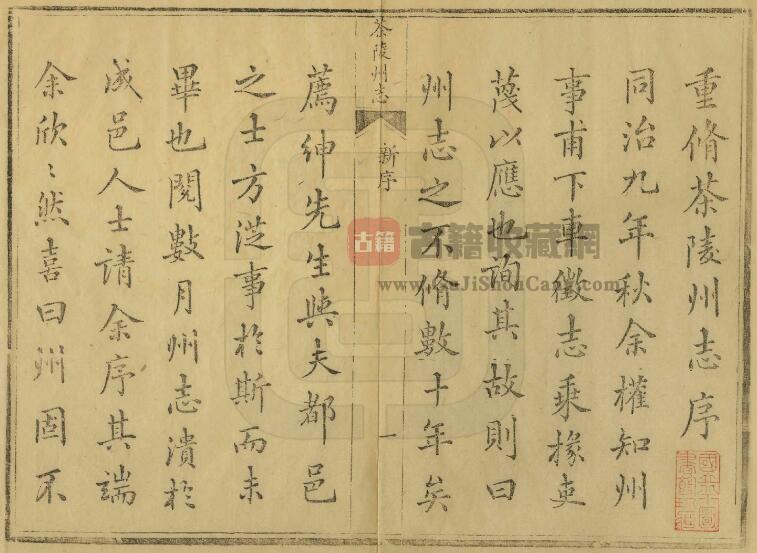 重脩茶陵州志序
同治九年秋余權知州
事甫下車徵志乘掾吏
蔑以應也詢其故則曰
州志之不脩數十年矣
茶陵州志 新序 一
薦紳先生與夫都邑
之士方從事於斯而未
畢也閱數月州志潰於
成邑人士請余序其端
余欣〻然喜曰州固不
古籍 古籍收藏網
www.GuJiShouCang.com